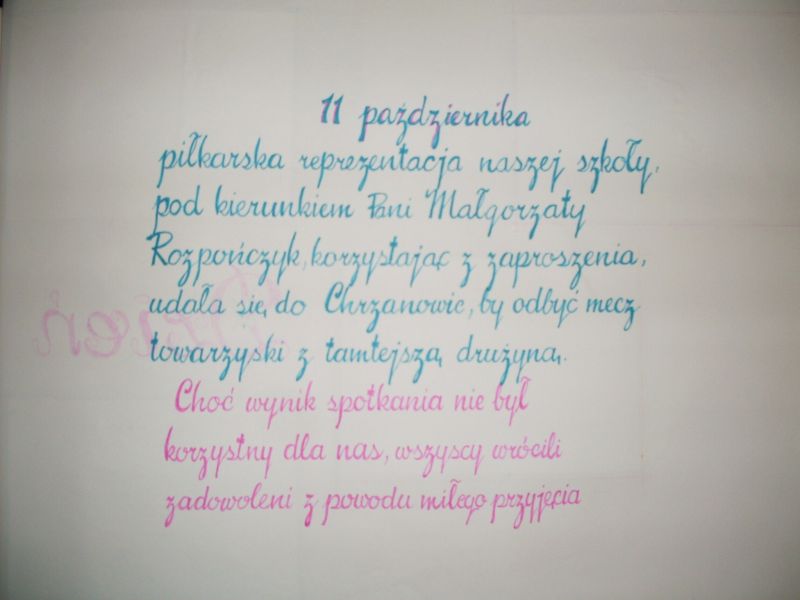 11 października
piłkarska reprezentacja naszej szkoły,
pod kierunkiem Pani Małgorzaty
Rozpończyk, korzystając z zaproszenia,
udała się do Chrzanowic, by odbyć mecz
towarzyski z tamtejszą drużyną.
Choć wynik spotkania nie był
korzystny dla nas, wszyscy wrócili
zadowoleni z powodu miłego przyjęcia